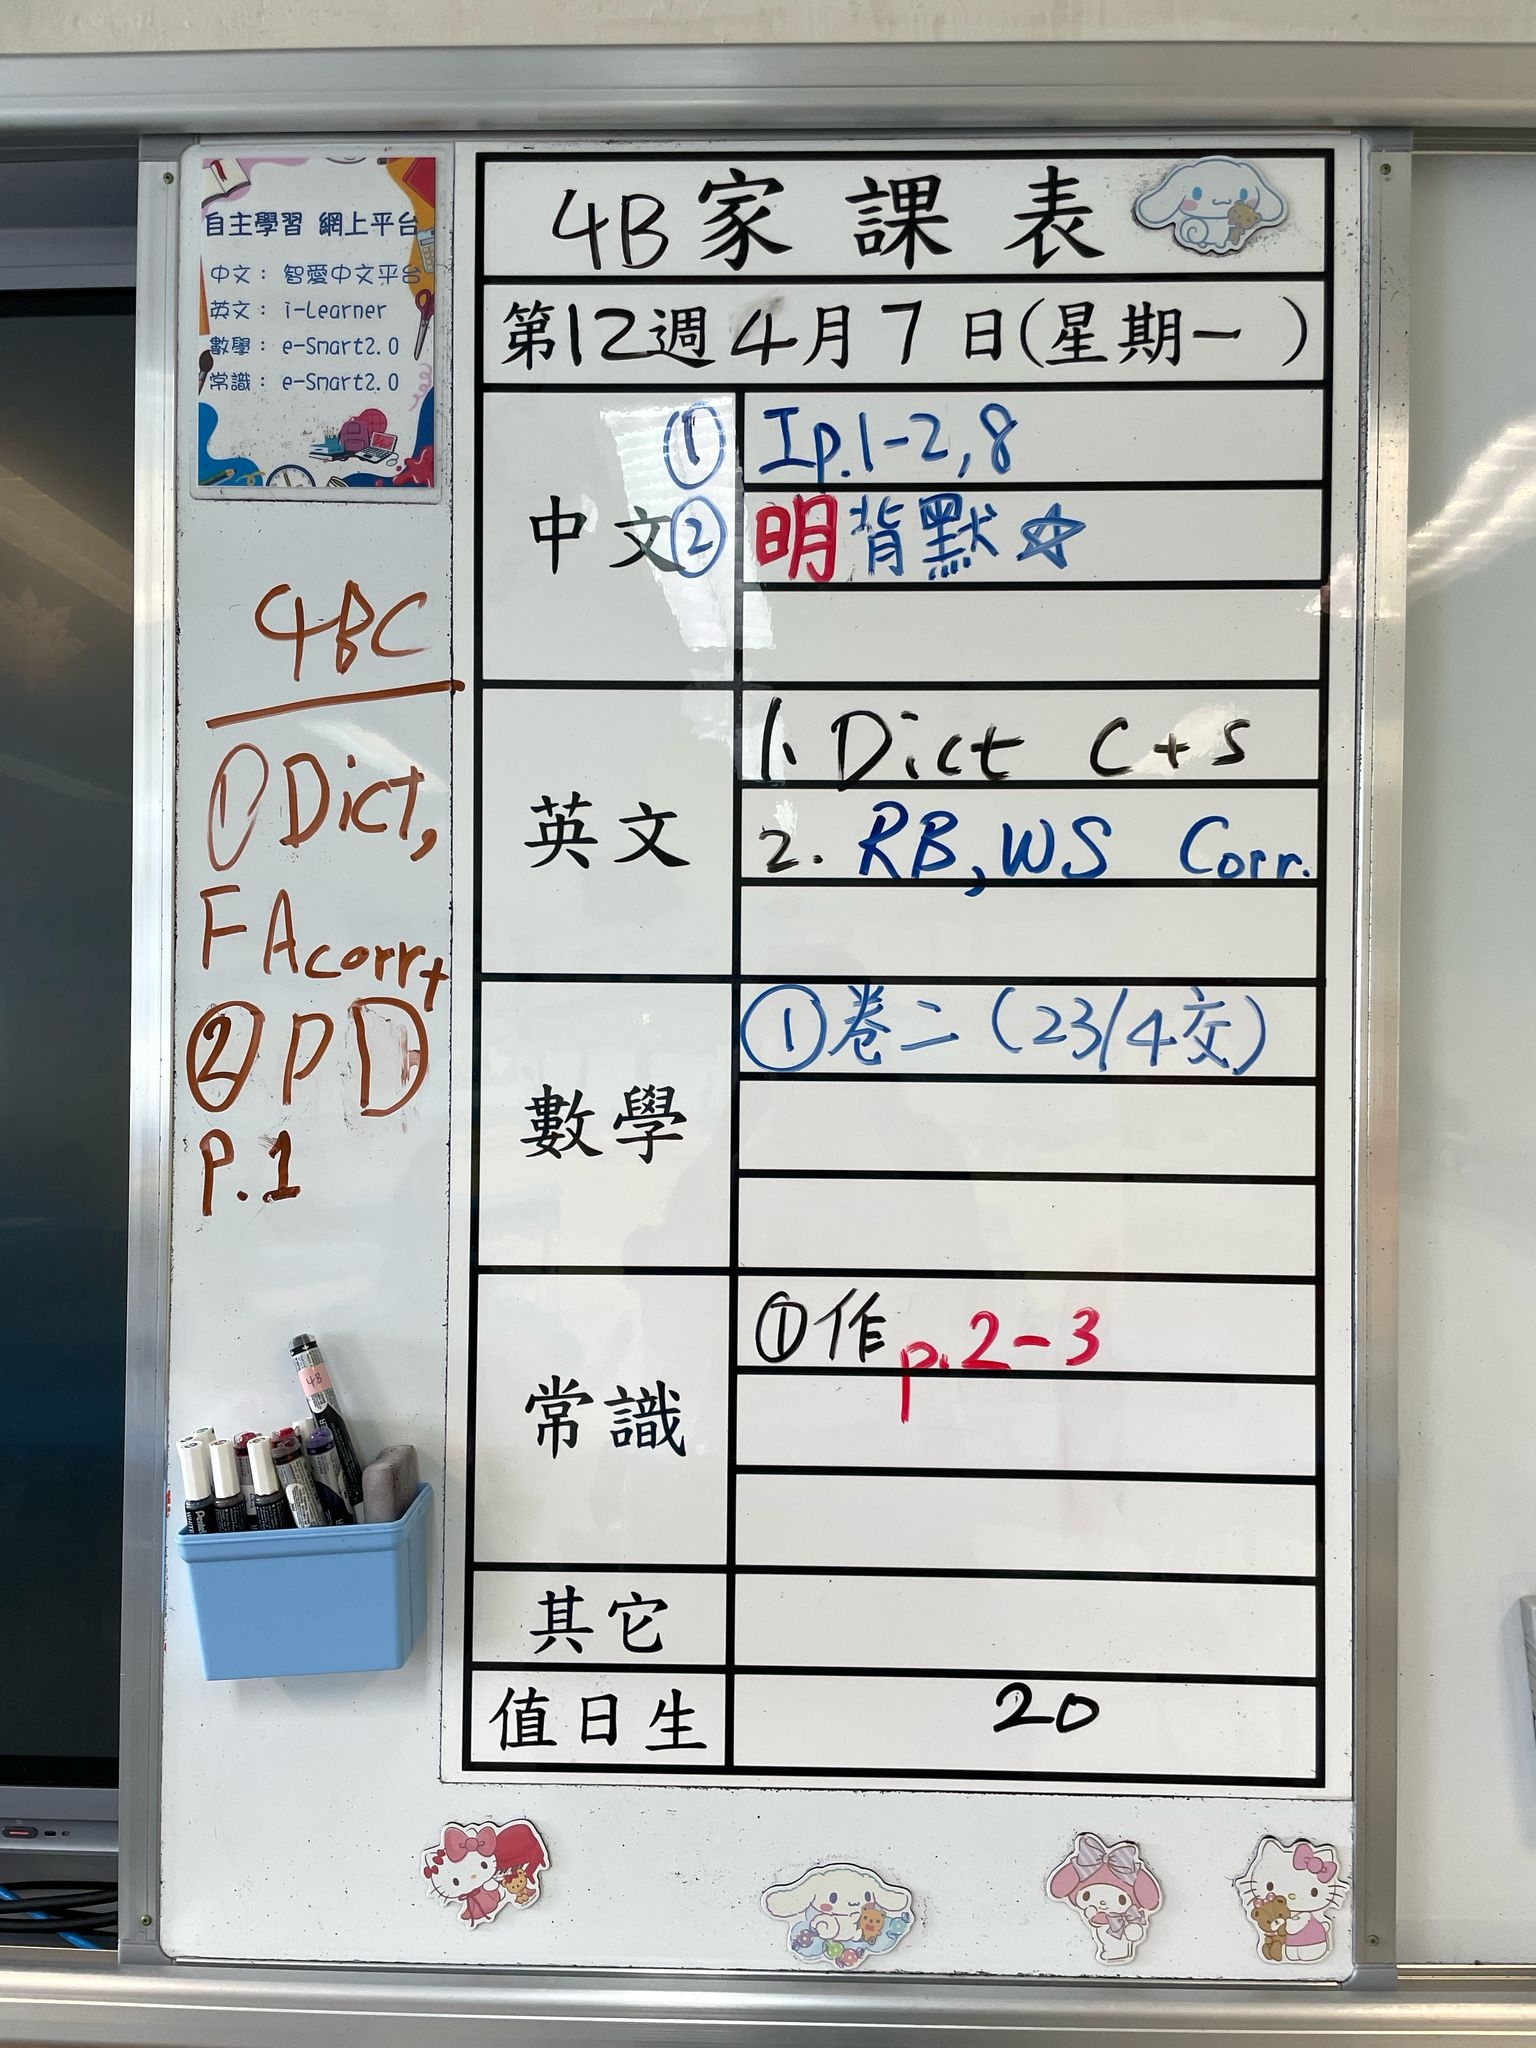 自主學習 網上平台
中文： 智愛中文平台
英文： i-Learner
數學： e-Smart2.0
常識： e-Smart2.0
4BC
①Dict,
FA corr+
②PD
P.1
4B家課表
第12週4月7日(星期一)
中文
① Ip.1-2,8
② 明背默☆
英文
1. Dict C+S
2. RB, WS Corr.
數學
①卷二(23/4交)
常識
①作 p.2-3
其它
值日生
20
4B